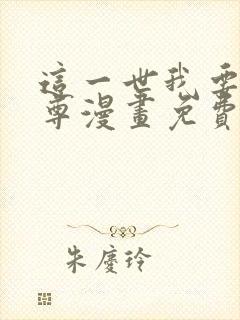 這一世我要
尊漫畫免費
朱慶玲